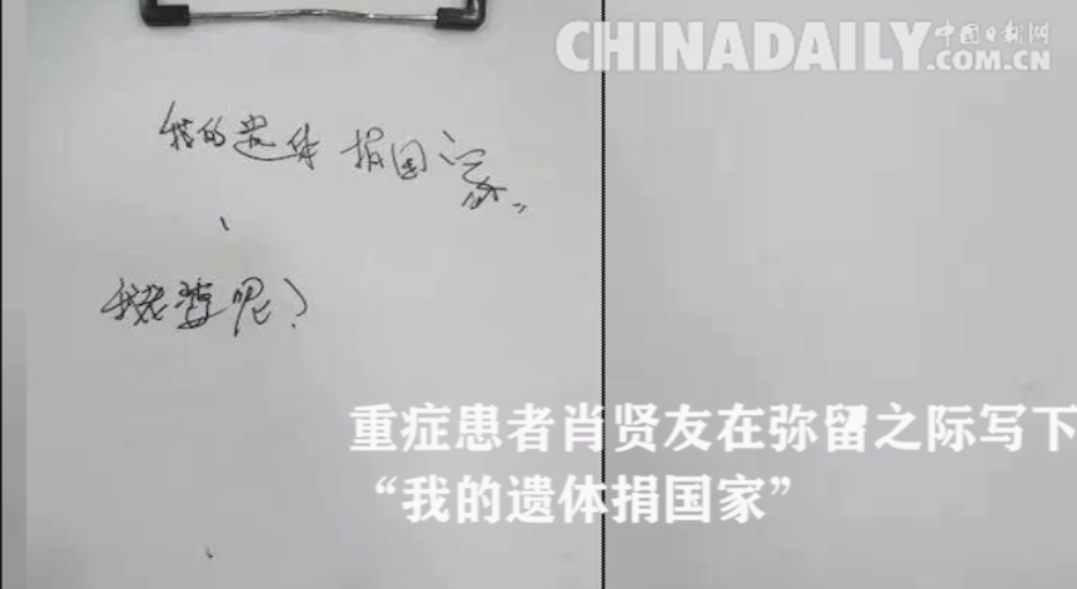 CHINADAILY 中国日报网
.COM.CN
我的遗体捐国家。
、
我老婆呢？
重症患者肖贤友在弥留之际写下
“我的遗体捐国家”